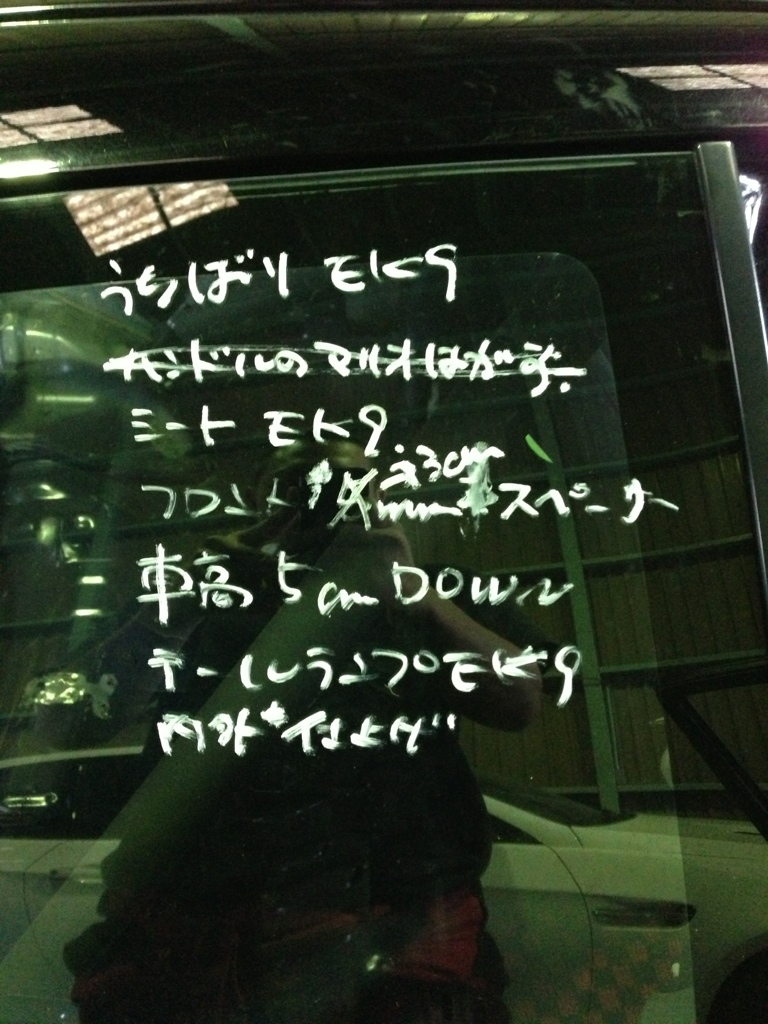 うちばり EK9
ハンドルのマリオはがす.
ミート EK9
フロント 3cm スペーサー
車高 5cm DOWN
テールランプ EK9
内外